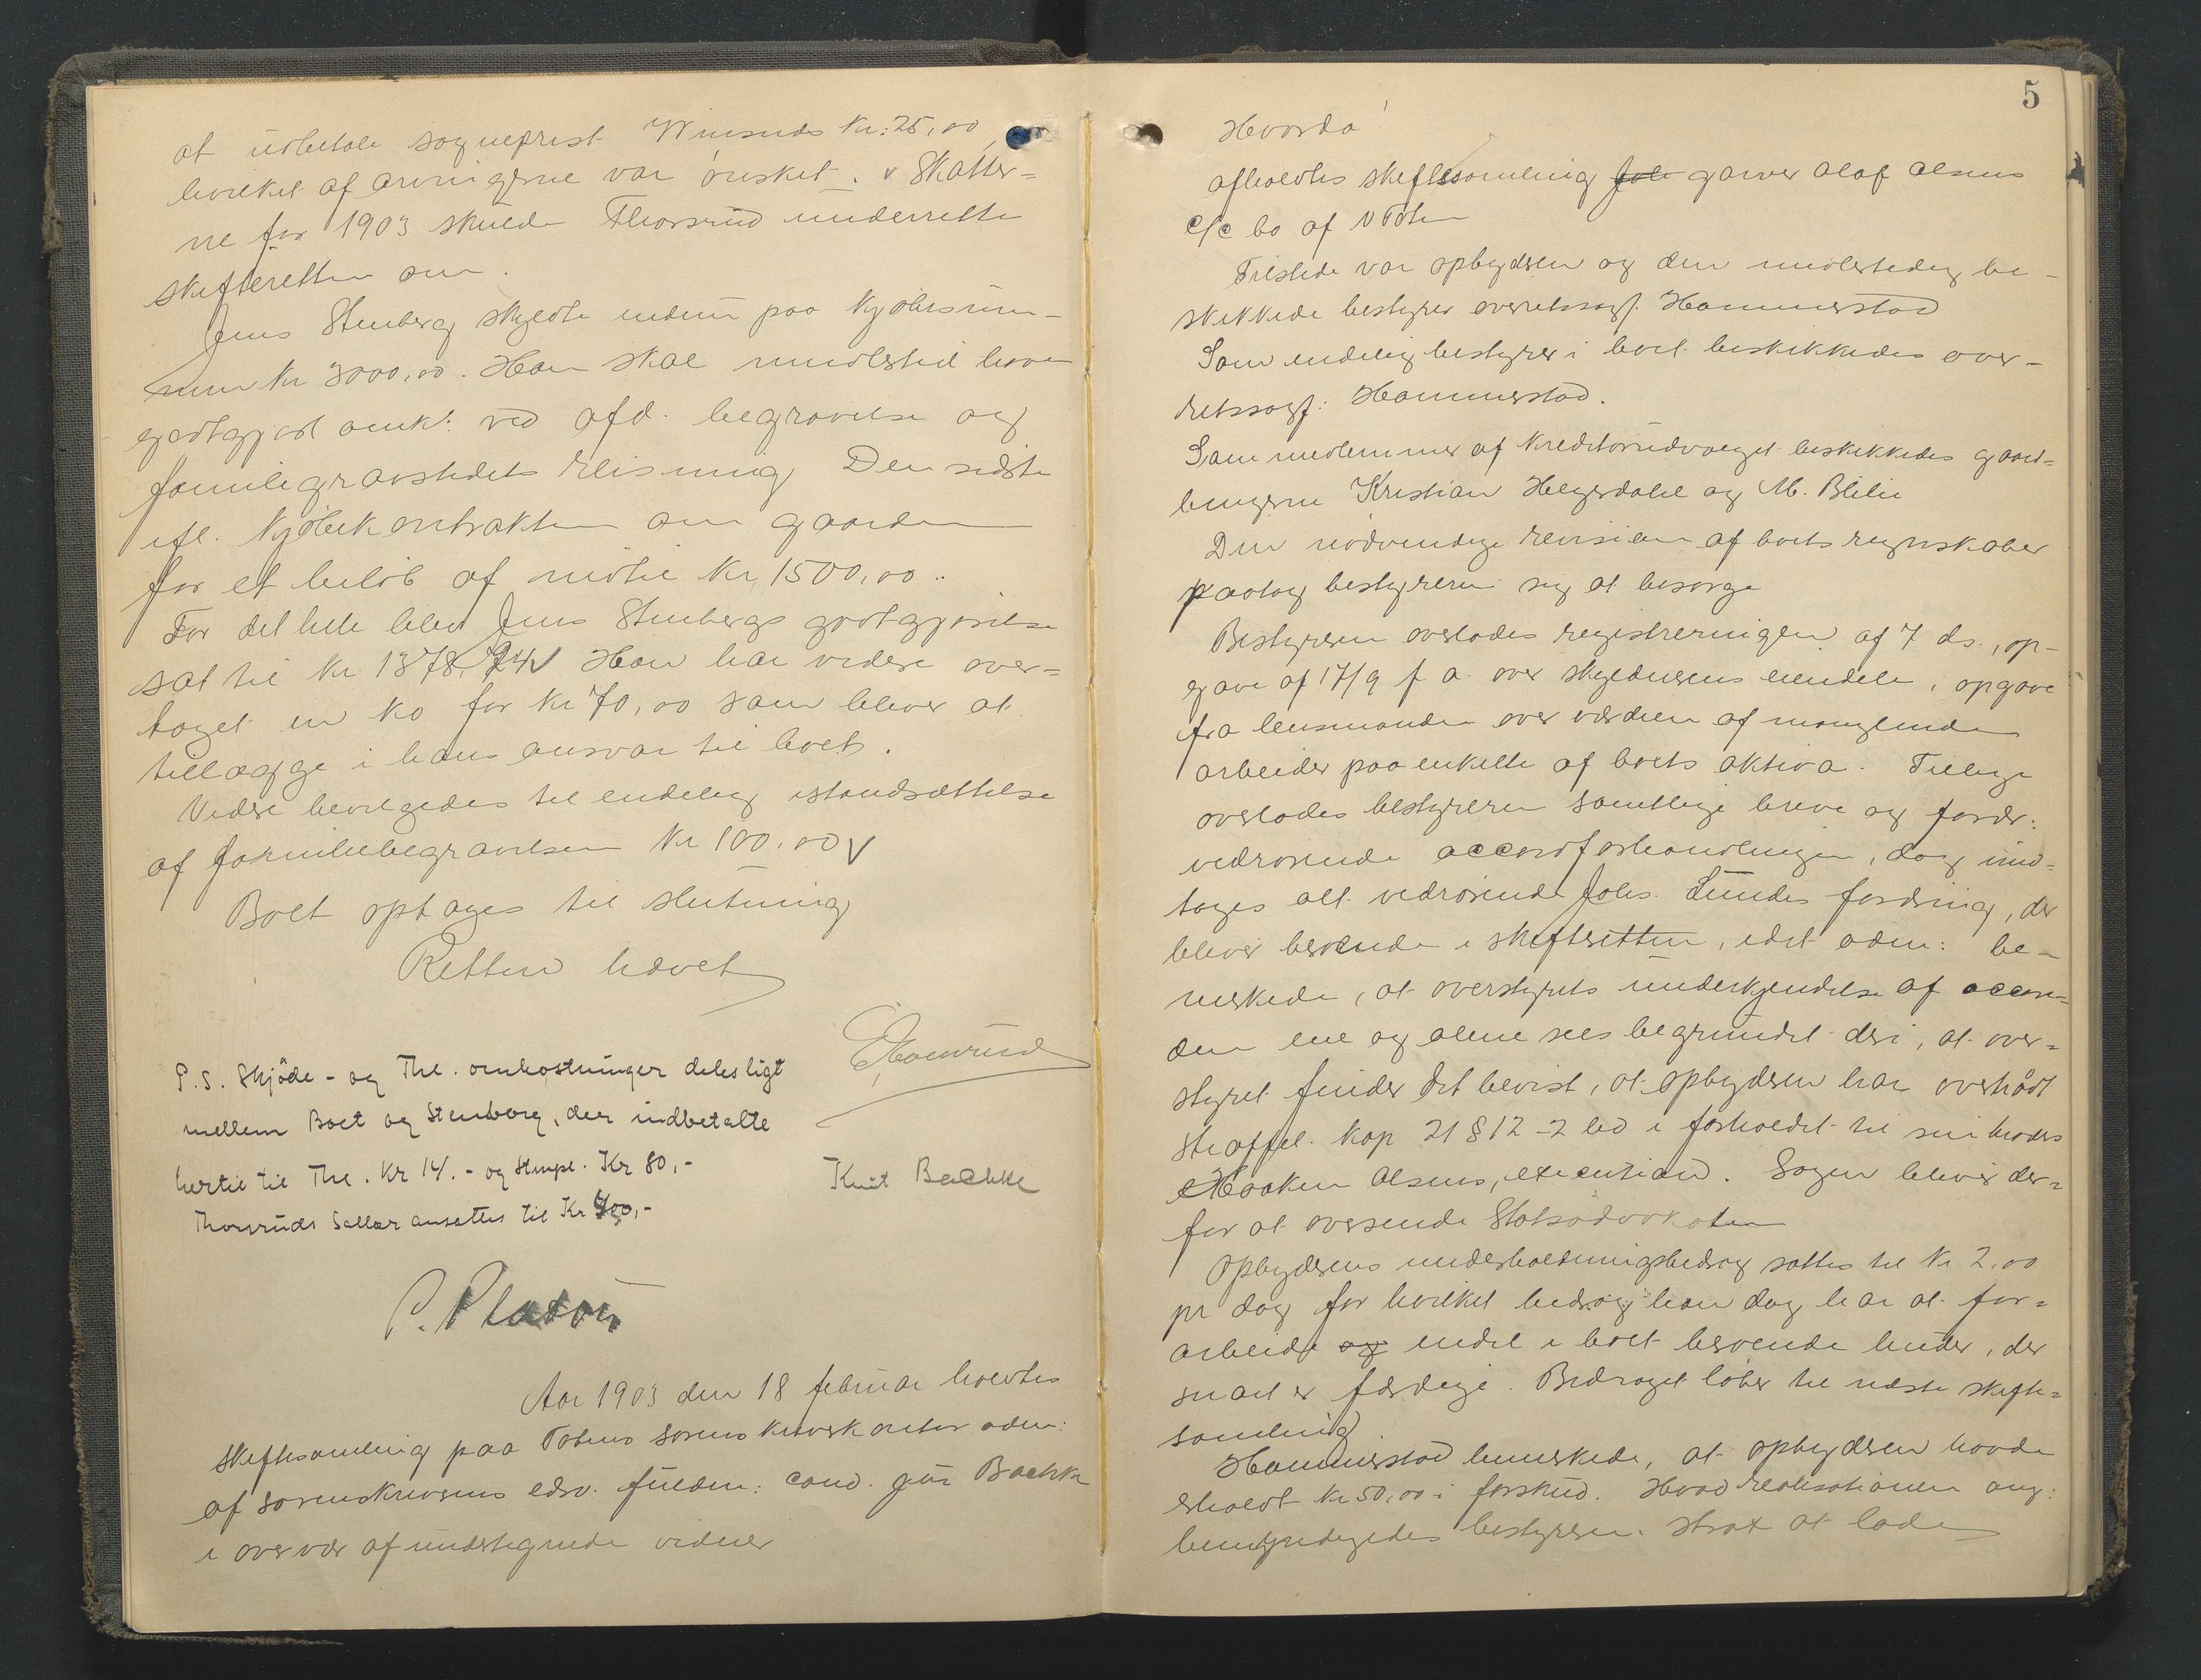 at udbetale sogneprest Wiisnes Kr: 25,00
hvilket af arvingerne var ønsket. v Skatter=
ne for 1903 skulde Thorsrud underrette
skifteretten om.
Jens Stenberg skyldte endnu paa kjøbesum-
men Kr 3000,00. Han skal imidlertid have
godtgjort omk: ved afd. begravelse og
familiegravstedets reisning Den sidste
ifl. kjøbekontrakten om gaarden
for et beløb af indtil Kr 1500,00..
For det hele blev Jens Stenbergs godtgjørelse
sat til Kr 1378,24 v Han har videre over=
taget en ko for Kr 70,00 som bliver at
tillægge i hans ansvar til boet.
Videre bevilgedes til endelig istandsættelse
af familiebegravelsen Kr 100,00 v
Boet optages til slutning
Retten hævet
P.S. Skjøde- og Thl. omkostninger deles ligt
mellem Boet og Stenberg, der indbetalte
hertil til Thl. Kr 14.- og Stmpl. Kr 80,-
Thorsruds Sallær ansattes til Kr 400,-
Knut Bachke
P. Platou
Aar 1903 den 18 februar holdtes
skiftesamling paa Totens sorenskriverkontor adm:
af sorenskriverens edsv. fuldm: cand. jur Bachke
i overvær af undertegnede vidner
5
Hvorda
afholdtes skiftessamling i garver Olaf Olsens
c/c bo af V Toten
Tilstede var opbyderen og den midlertidig be-
skikkede bestyrer overretssagf. Hammerstad
Som endelig bestyrer i boet beskikkedes over-
retssagf: Hammerstad.
Som medlemmer af kreditorudvalget beskikkedes gaard=
brugerne Kristian Helgerdahl og M. Blilie
Den nødvendige revision af boets regnskaber
paatog bestyreren sig at besørge
Bestyreren overlodes registreringen af 7 ds., op-
gave af 17/9 f a. over skyldnerens eiendele, opgave
fra lensmanden over værdien af manglende
arbeider paa enkelte af boets aktiva. Tillige
overlodes bestyreren samtlige breve og fordr:
vedrørende accordforhandlingen, dog und=
tages alt vedrørende Johs. Lundes fordring, der
bliver beroende i skifteretten, idet adm: be-
merkede, at overstyrets underkjendelse af accor=
den ene og alene sees begrundet deri, at over=
styret finder det bevist, at opbyderen har overtrådt
straffel. kap 21 § 12 - 2 led i forholdet til sin broders
Haaken Olsens, execution. Sagen bliver der=
for at oversende Statsadvokaten
Opbyderens underholdningsbidrag sattes til Kr 2,00
pr dag for hvilket bidrag han dog har at for=
arbeide og endel i boet beroende huder, der
snart er færdige. Bidraget løber til næste skifte=
samling
Hammerstad bemerkede, at opbyderen havde
erholdt Kr 50,00 i forskud. Hvad realisationen ang:
bemyndigedes bestyreren strax at lade